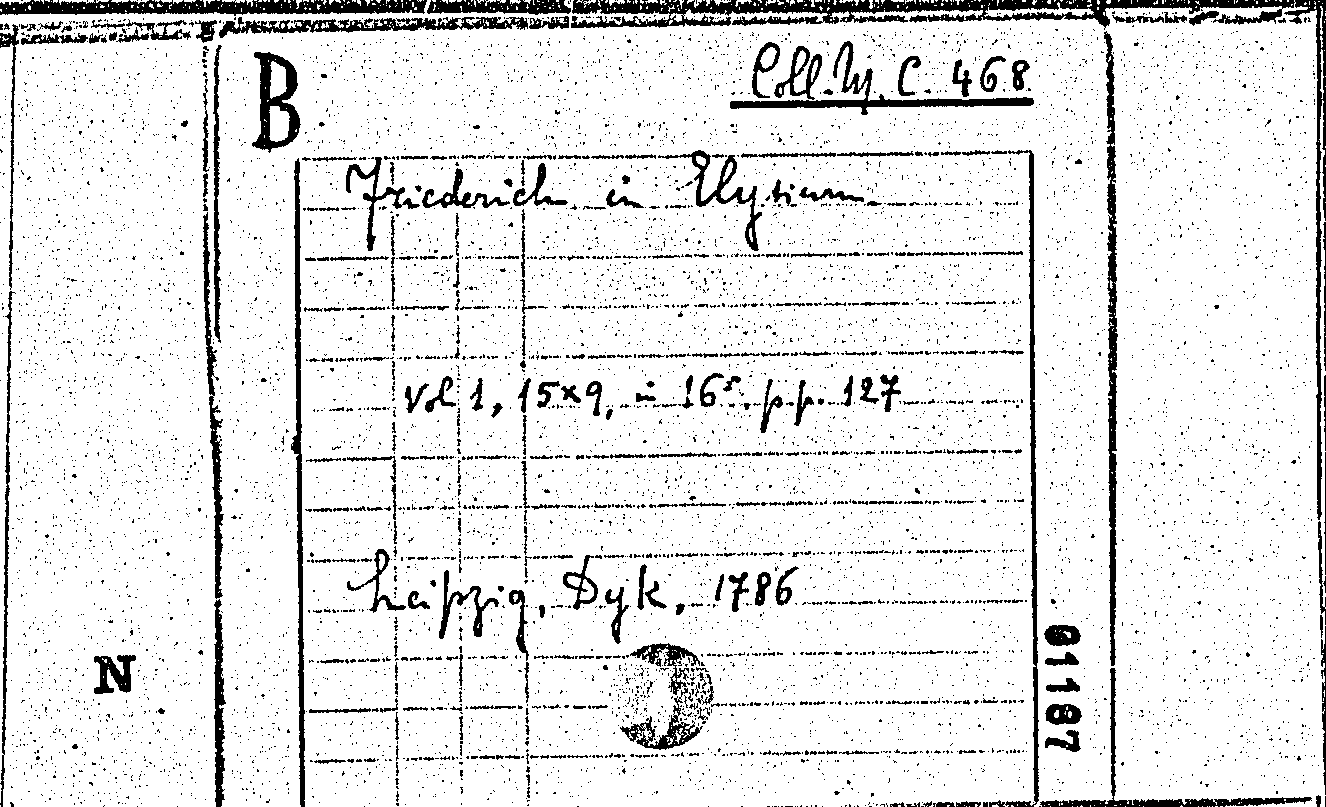 B
Coll. . C. 468
Friederich in Elysium.
vol 1, 15×9, in 16°. pp. 127
Leipzig, Dyk, 1786
N
01187